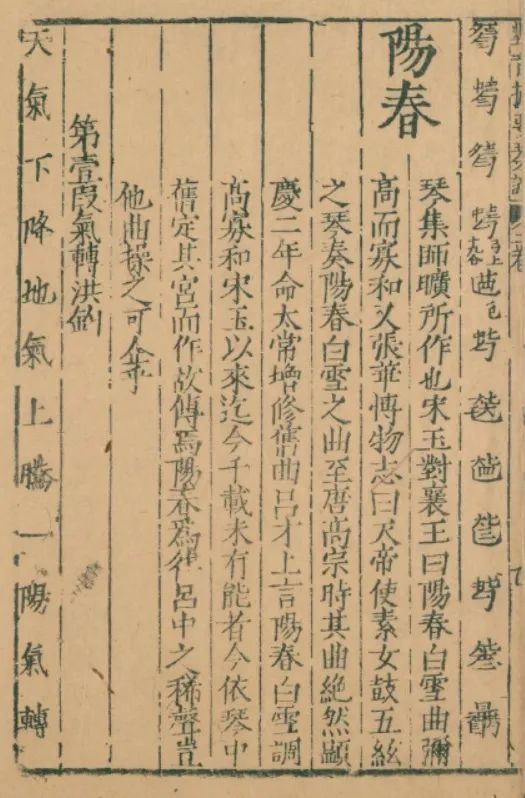 陽春
琴集師曠所作也宋玉對襄王曰陽春白雪曲彌
高而寡和又張華博物志曰天帝使素女鼓五絃
之琴奏陽春白雪之曲至唐高宗時其曲絶然顯
慶二年命太常增修舊曲呂才上言陽春白雪調
高寡和宋玉以來迄今千載未有能者今依琴中
舊定其宮而作故傳焉陽春爲律呂中之稀聲豈
他曲操之可企乎
第壹叚氣轉洪鈞
天氣下降地氣上騰一陽氣轉